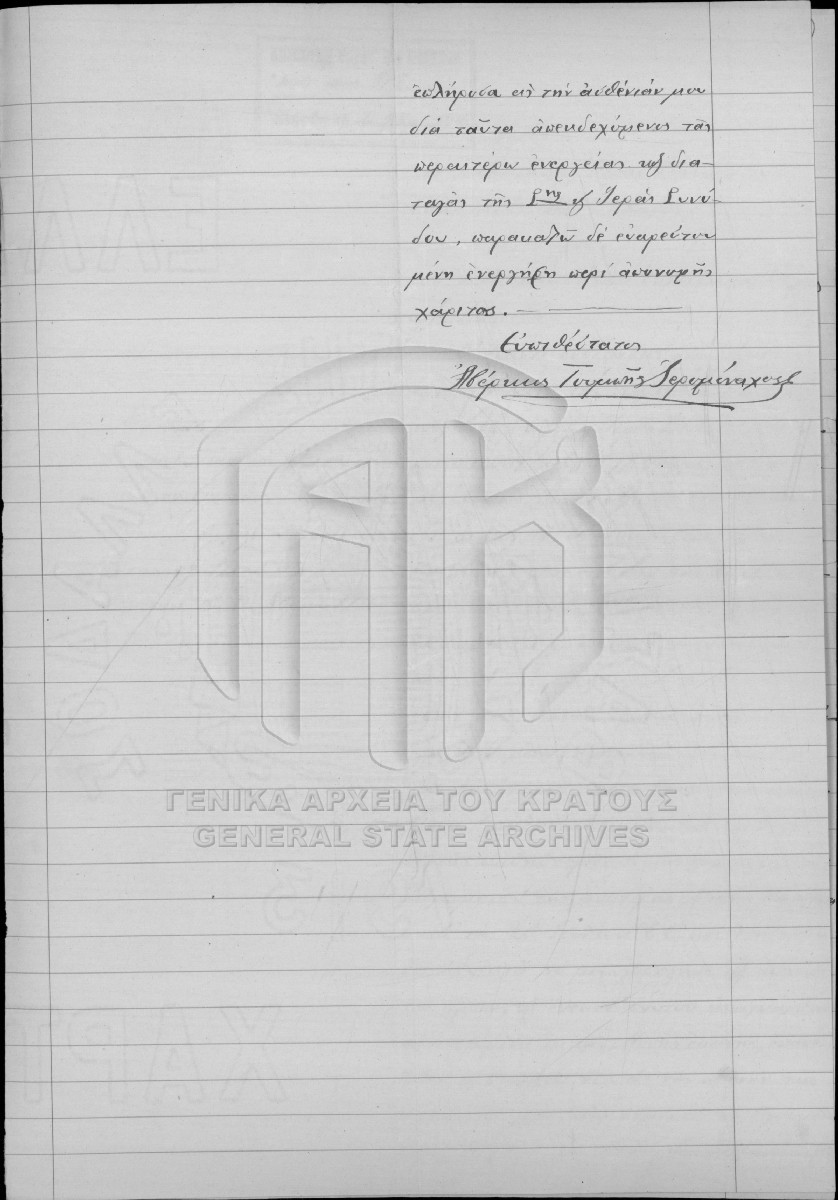 ἐπλήρωσα εἰς τὴν ἀσθένιάν μου
διά ταῦτα ἀπεκδεχόμενος τὰς
περαιτέρω ἐνεργείας καὶ δια-
ταγὰς τῆς Σης Ἱερᾶς Συνό-
δου, παρακαλῶ δὲ
ἐνεργήσῃ περί ἀπονομῆς
χάριτος.
Εὐπειθέστατος
Ἀβέρκιος Ἱερομόναχος
ΓΕΝΙΚΑ ΑΡΧΕΙΑ ΤΟΥ ΚΡΑΤΟΥΣ
GENERAL STATE ARCHIVES